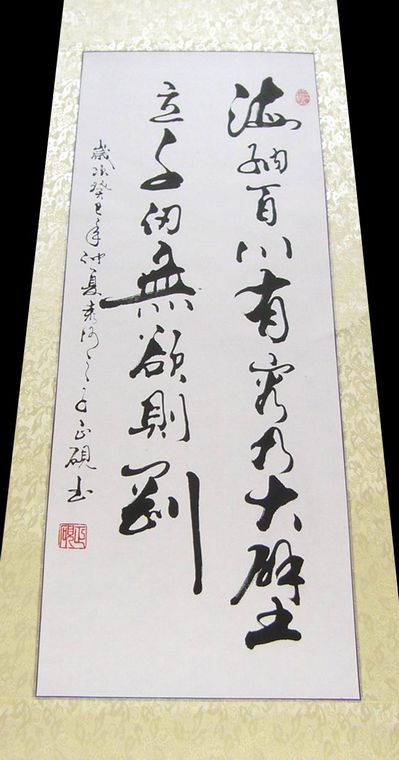 海纳百川有容乃大壁
立千仞無欲則剛
歲次癸巳年仲夏 正硯书